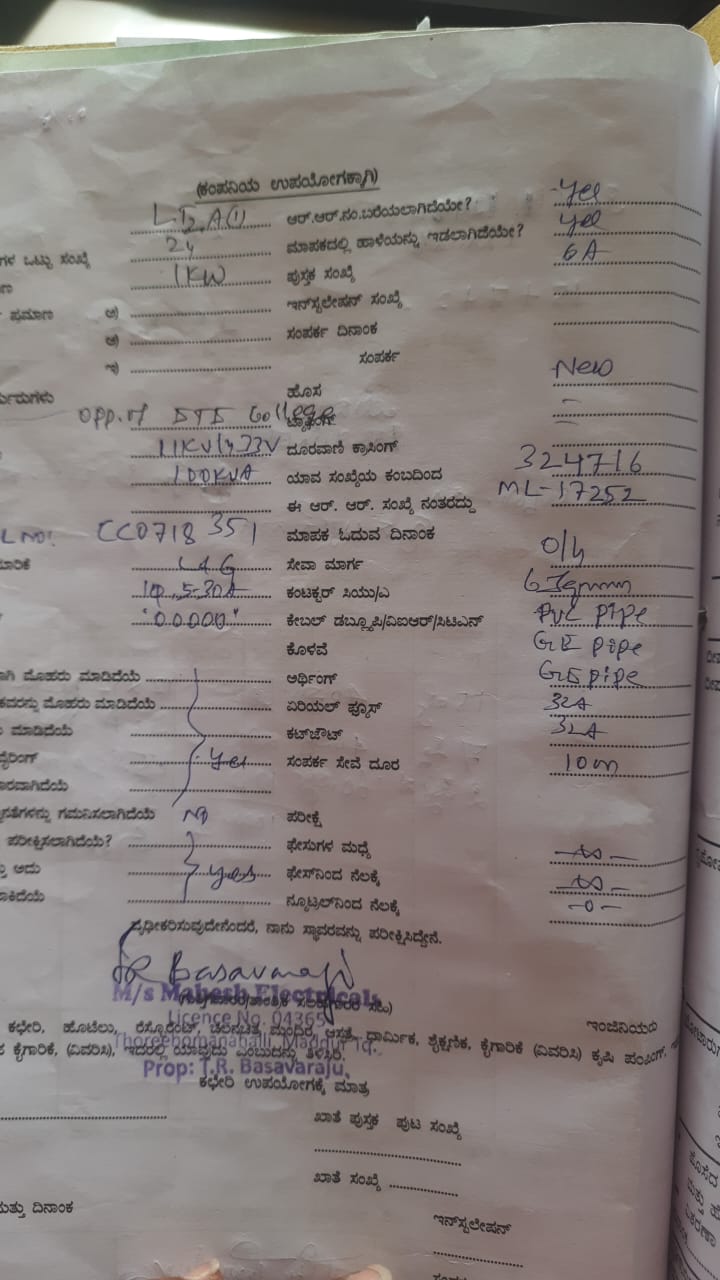 (ಕಂಪನಿಯ ಉಪಯೋಗಕ್ಕಾಗಿ)
ಆರ್.ಆರ್.ನಂ.ಬರೆಯಲಾಗಿದೆಯೇ? Yes
ಗಳ ಒಟ್ಟು ಸಂಖ್ಯೆ 24 ಮಾಪಕದಲ್ಲಿ ಹಾಳೆಯನ್ನು ಇಡಲಾಗಿದೆಯೇ? Yes
1KW ಪುಸ್ತಕ ಸಂಖ್ಯೆ 6A
ಪ್ರಮಾಣ ಅ) ಇನ್‌ಸ್ಟಲೇಷನ್ ಸಂಖ್ಯೆ
ಆ) ಸಂಪರ್ಕ ದಿನಾಂಕ
ಇ) ಸಂಪರ್ಕ
ಹೊಸ New
opp.of College ಟ್ಯಾಪಿಂಗ್
ದೂರವಾಣಿ ಕ್ರಾಸಿಂಗ್
100KVA ಯಾವ ಸಂಖ್ಯೆಯ ಕಂಬದಿಂದ 324716
ಈ ಆರ್. ಆರ್. ಸಂಖ್ಯೆ ನಂತರದ್ದು ML-17252
L NO: CC0718351 ಮಾಪಕ ಓದುವ ದಿನಾಂಕ
L&G ಸೇವಾ ಮಾರ್ಗ O/h
ಕಂಟಕ್ಟರ್ ಸಿಯು/ಎ
"00000" ಕೇಬಲ್ ಡಬ್ಲ್ಯೂಪಿ/ವಿಐಆರ್/ಸಿಟಿಎನ್ PVC pipe
ಕೊಳವೆ GI pipe
ಗಿ ಮೊಹರು ಮಾಡಿದೆಯೆ ಅರ್ಥಿಂಗ್ GI pipe
ಕವರನ್ನು ಮೊಹರು ಮಾಡಿದೆಯೆ ಏರಿಯಲ್ ಫ್ಯೂಸ್ 32A
ಮಾಡಿದೆಯೆ ಕಟ್‌ಔಟ್ 32A
ವೈರಿಂಗ್ Yes ಸಂಪರ್ಕ ಸೇವೆ ದೂರ 10m
ಾರವಾಗಿದೆಯೆ
ಗಳನ್ನು ಗಮನಿಸಲಾಗಿದೆಯೆ NO ಪರೀಕ್ಷೆ
ಪರೀಕ್ಷಿಸಲಾಗಿದೆಯೆ? ಫೇಸುಗಳ ಮಧ್ಯೆ ∞
ಅದು Yes ಫೇಸ್‌ನಿಂದ ನೆಲಕ್ಕೆ ∞
ನ್ಯೂಟ್ರಲ್‌ನಿಂದ ನೆಲಕ್ಕೆ -0-
ದೃಢೀಕರಿಸುವುದೇನೆಂದರೆ, ನಾನು ಸ್ಥಾವರವನ್ನು ಪರೀಕ್ಷಿಸಿದ್ದೇನೆ.
TR Basavaraju
M/s Mahesh Electricals
ಇಂಜಿನಿಯರು
Licence No. 04365
ಕಛೇರಿ, ಹೊಟೆಲು, ರೆಸ್ಟೋರೆಂಟ್, ಚಲನಚಿತ್ರ ಮಂದಿರ, ಆಸ್ಪತ್ರೆ, ಧಾರ್ಮಿಕ, ಶೈಕ್ಷಣಿಕ, ಕೈಗಾರಿಕೆ (ವಿವರಿಸಿ) ಕೃಷಿ ಪಂಪಿಂಗ್,
Thoreebomanahalli, Maddur Tq.
ಕೈಗಾರಿಕೆ, (ವಿವರಿಸಿ), ಇದರಲ್ಲಿ ಯಾವುದು ಎಂಬುದನ್ನು ತಿಳಿಸಿರಿ.
Prop: T.R. Basavaraju.
ಕಛೇರಿ ಉಪಯೋಗಕ್ಕೆ ಮಾತ್ರ
ಖಾತೆ ಪುಸ್ತಕ ಪುಟ ಸಂಖ್ಯೆ
ಖಾತೆ ಸಂಖ್ಯೆ
ಮತ್ತು ದಿನಾಂಕ
ಇನ್‌ಸ್ಟಲೇಷನ್